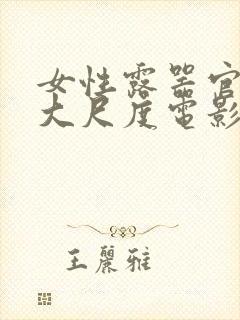 女性露器官
大尺度電影
王麗雅